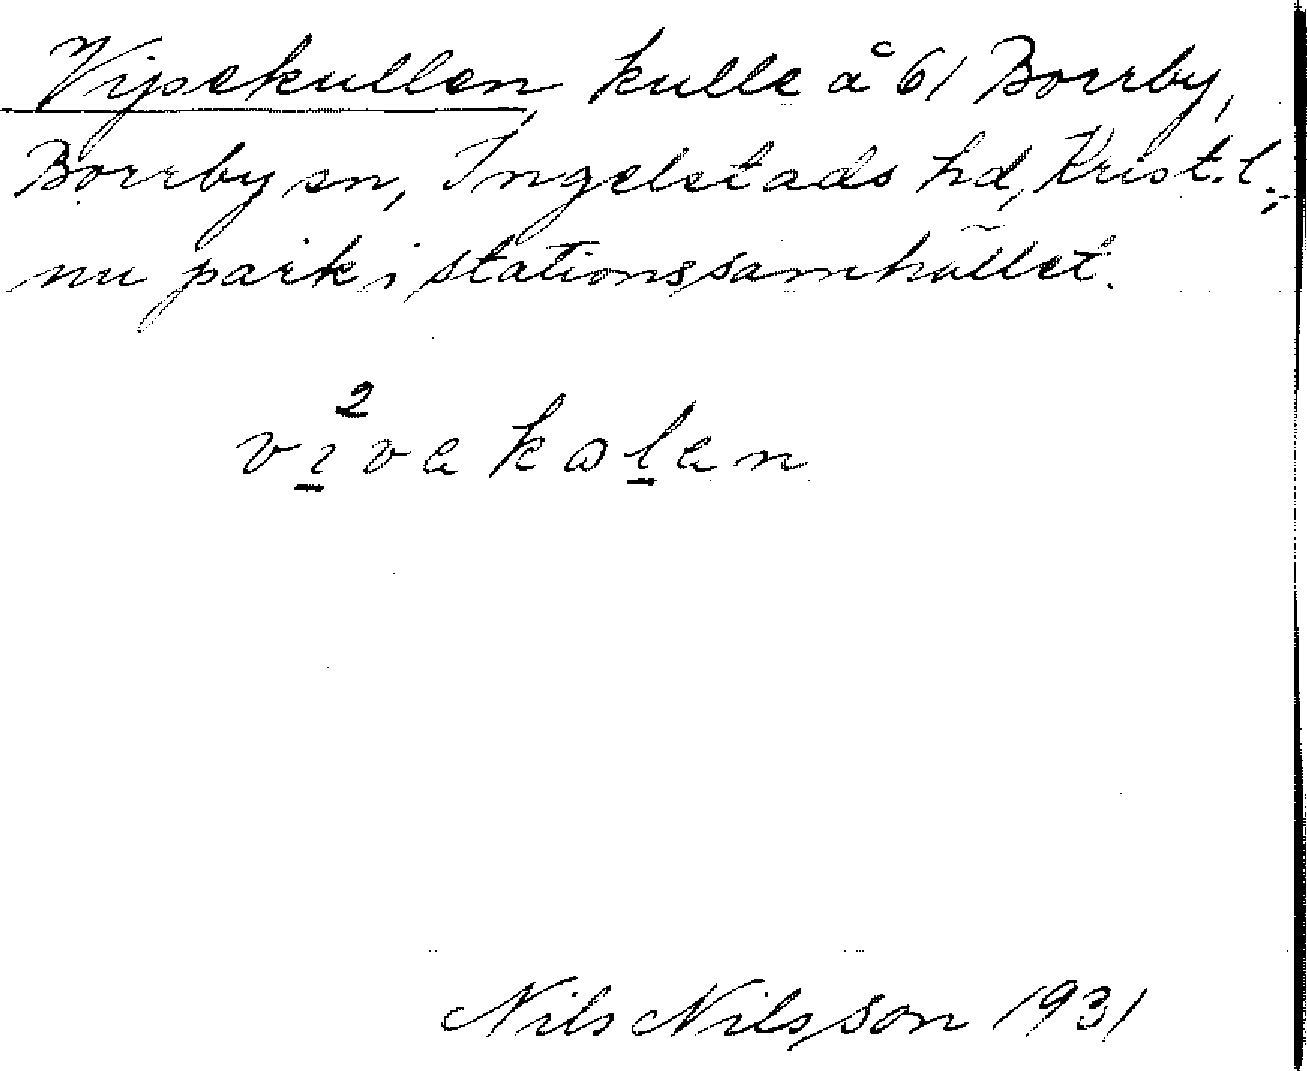 Vipekullen, kulle å 61 Borrby,
Borrby sn, Ingelstads hd, Krist. l.;
nu park i stationssamhället.
2
vivakolan
Nils Nilsson 1931